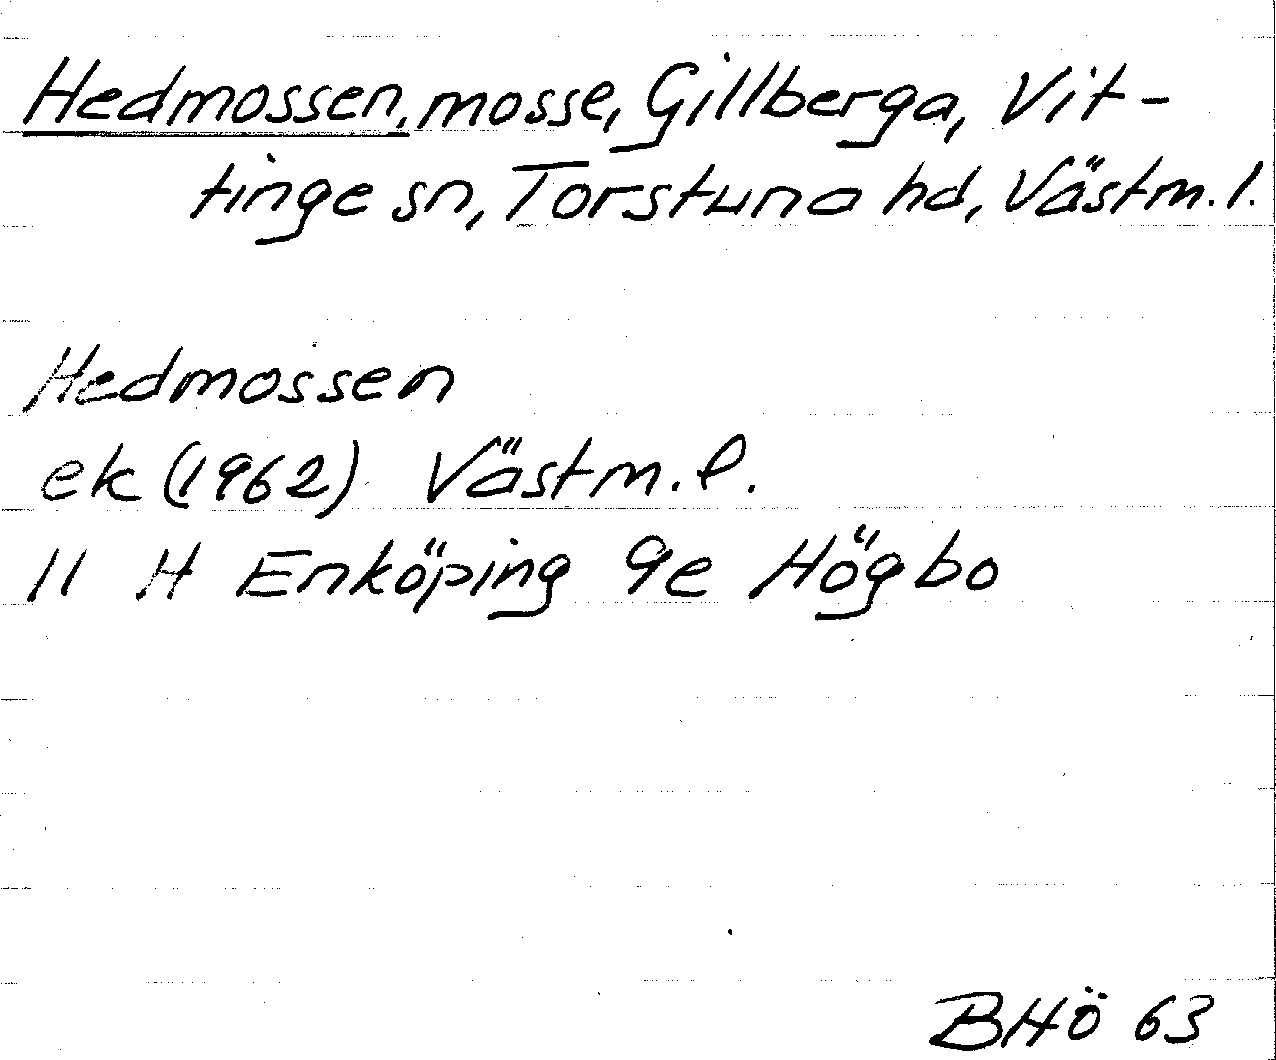 Hedmossen, mosse, Gillberga, Vit-
tinge sn, Torstuna hd, Västm. l.
Hedmossen
ek (1962) Västm. l.
11 H Enköping 9e Högbo
BHÖ 63